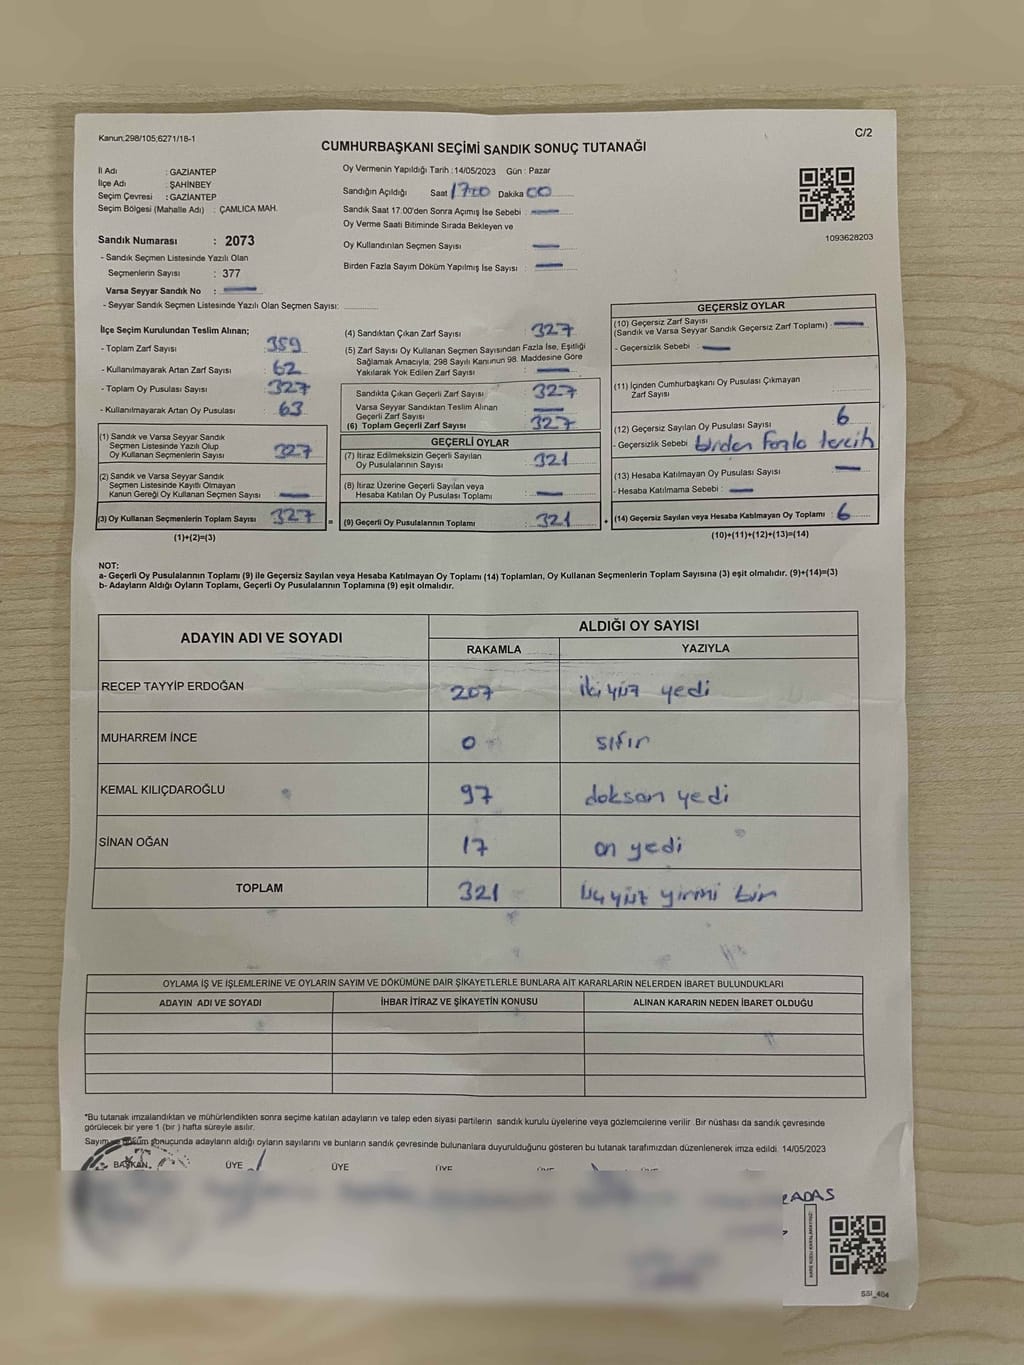 Kanun:298/105;6271/18-1
C/2
CUMHURBAŞKANI SEÇİMİ SANDIK SONUÇ TUTANAĞI
İl Adı : GAZIANTEP
İlçe Adı : ŞAHİNBEY
Seçim Çevresi : GAZIANTEP
Seçim Bölgesi (Mahalle Adı) : ÇAMLICA MAH.
Sandık Numarası : 2073
- Sandık Seçmen Listesinde Yazılı Olan
Seçmenlerin Sayısı : 377
Varsa Seyyar Sandık No : —
- Seyyar Sandık Seçmen Listesinde Yazılı Olan Seçmen Sayısı:
Oy Vermenin Yapıldığı Tarih : 14/05/2023 Gün : Pazar
Sandığın Açıldığı Saat 1700 Dakika 00
Sandık Saat 17:00'den Sonra Açımış İse Sebebi : —
Oy Verme Saati Bitiminde Sırada Bekleyen ve
Oy Kullandırılan Seçmen Sayısı —
Birden Fazla Sayım Döküm Yapılmış İse Sayısı : —
1093628203
İlçe Seçim Kurulundan Teslim Alınan;
- Toplam Zarf Sayısı 359
- Kullanılmayarak Artan Zarf Sayısı 62
- Toplam Oy Pusulası Sayısı 327
- Kullanılmayarak Artan Oy Pusulası 63
(1) Sandık ve Varsa Seyyar Sandık
Seçmen Listesinde Yazılı Olup
Oy Kullanan Seçmenlerin Sayısı 327
(2) Sandık ve Varsa Seyyar Sandık
Seçmen Listesinde Kayıtlı Olmayan
Kanun Gereği Oy Kullanan Seçmen Sayısı —
(3) Oy Kullanan Seçmenlerin Toplam Sayısı 327
(1)+(2)=(3)
(4) Sandıktan Çıkan Zarf Sayısı 327
(5) Zarf Sayısı Oy Kullanan Seçmen Sayısından Fazla İse, Eşitliği
Sağlamak Amacıyla, 298 Sayılı Kanunun 98. Maddesine Göre
Yakılarak Yok Edilen Zarf Sayısı —
Sandıkta Çıkan Geçerli Zarf Sayısı 327
Varsa Seyyar Sandıktan Teslim Alınan
Geçerli Zarf Sayısı —
(6) Toplam Geçerli Zarf Sayısı 327
GEÇERLİ OYLAR
(7) İtiraz Edilmeksizin Geçerli Sayılan
Oy Pusulalarının Sayısı 321
(8) İtiraz Üzerine Geçerli Sayılan veya
Hesaba Katılan Oy Pusulası Toplamı —
= (9) Geçerli Oy Pusulalarının Toplamı 321 +
GEÇERSİZ OYLAR
(10) Geçersiz Zarf Sayısı
(Sandık ve Varsa Seyyar Sandık Geçersiz Zarf Toplamı) : —
- Geçersizlik Sebebi : —
(11) İçinden Cumhurbaşkanı Oy Pusulası Çıkmayan
Zarf Sayısı
(12) Geçersiz Sayılan Oy Pusulası Sayısı 6
- Geçersizlik Sebebi birden fazla tercih
(13) Hesaba Katılmayan Oy Pusulası Sayısı —
- Hesaba Katılmama Sebebi : —
(14) Geçersiz Sayılan veya Hesaba Katılmayan Oy Toplamı : 6
(10)+(11)+(12)+(13)=(14)
NOT:
a- Geçerli Oy Pusulalarının Toplamı (9) ile Geçersiz Sayılan veya Hesaba Katılmayan Oy Toplamı (14) Toplamları, Oy Kullanan Seçmenlerin Toplam Sayısına (3) eşit olmalıdır. (9)+(14)=(3)
b- Adayların Aldığı Oyların Toplamı, Geçerli Oy Pusulalarının Toplamına (9) eşit olmalıdır.
ADAYIN ADI VE SOYADI ALDIĞI OY SAYISI
RAKAMLA YAZIYLA
RECEP TAYYİP ERDOĞAN 207 iki yüz yedi
MUHARREM İNCE 0 sıfır
KEMAL KILIÇDAROĞLU 97 doksan yedi
SİNAN OĞAN 17 on yedi
TOPLAM 321 üç yüz yirmi bir
OYLAMA İŞ VE İŞLEMLERİNE VE OYLARIN SAYIM VE DÖKÜMÜNE DAİR ŞİKAYETLERLE BUNLARA AİT KARARLARIN NELERDEN İBARET BULUNDUKLARI
ADAYIN ADI VE SOYADI İHBAR İTİRAZ VE ŞİKAYETİN KONUSU ALINAN KARARIN NEDEN İBARET OLDUĞU
*Bu tutanak imzalandıktan ve mühürlendikten sonra seçime katılan adayların ve talep eden siyasi partilerin sandık kurulu üyelerine veya gözlemcilerine verilir. Bir nüshası da sandık çevresinde
görülecek bir yere 1 (bir ) hafta süreyle asılır.
Sayım ve döküm sonuçunda adayların aldığı oyların sayılarını ve bunların sandık çevresinde bulunanlara duyurulduğunu gösteren bu tutanak tarafımızdan düzenlenerek imza edildi. 14/05/2023
BAŞKAN ÜYE ÜYE ÜYE ÜYE ÜYE
SSI_404